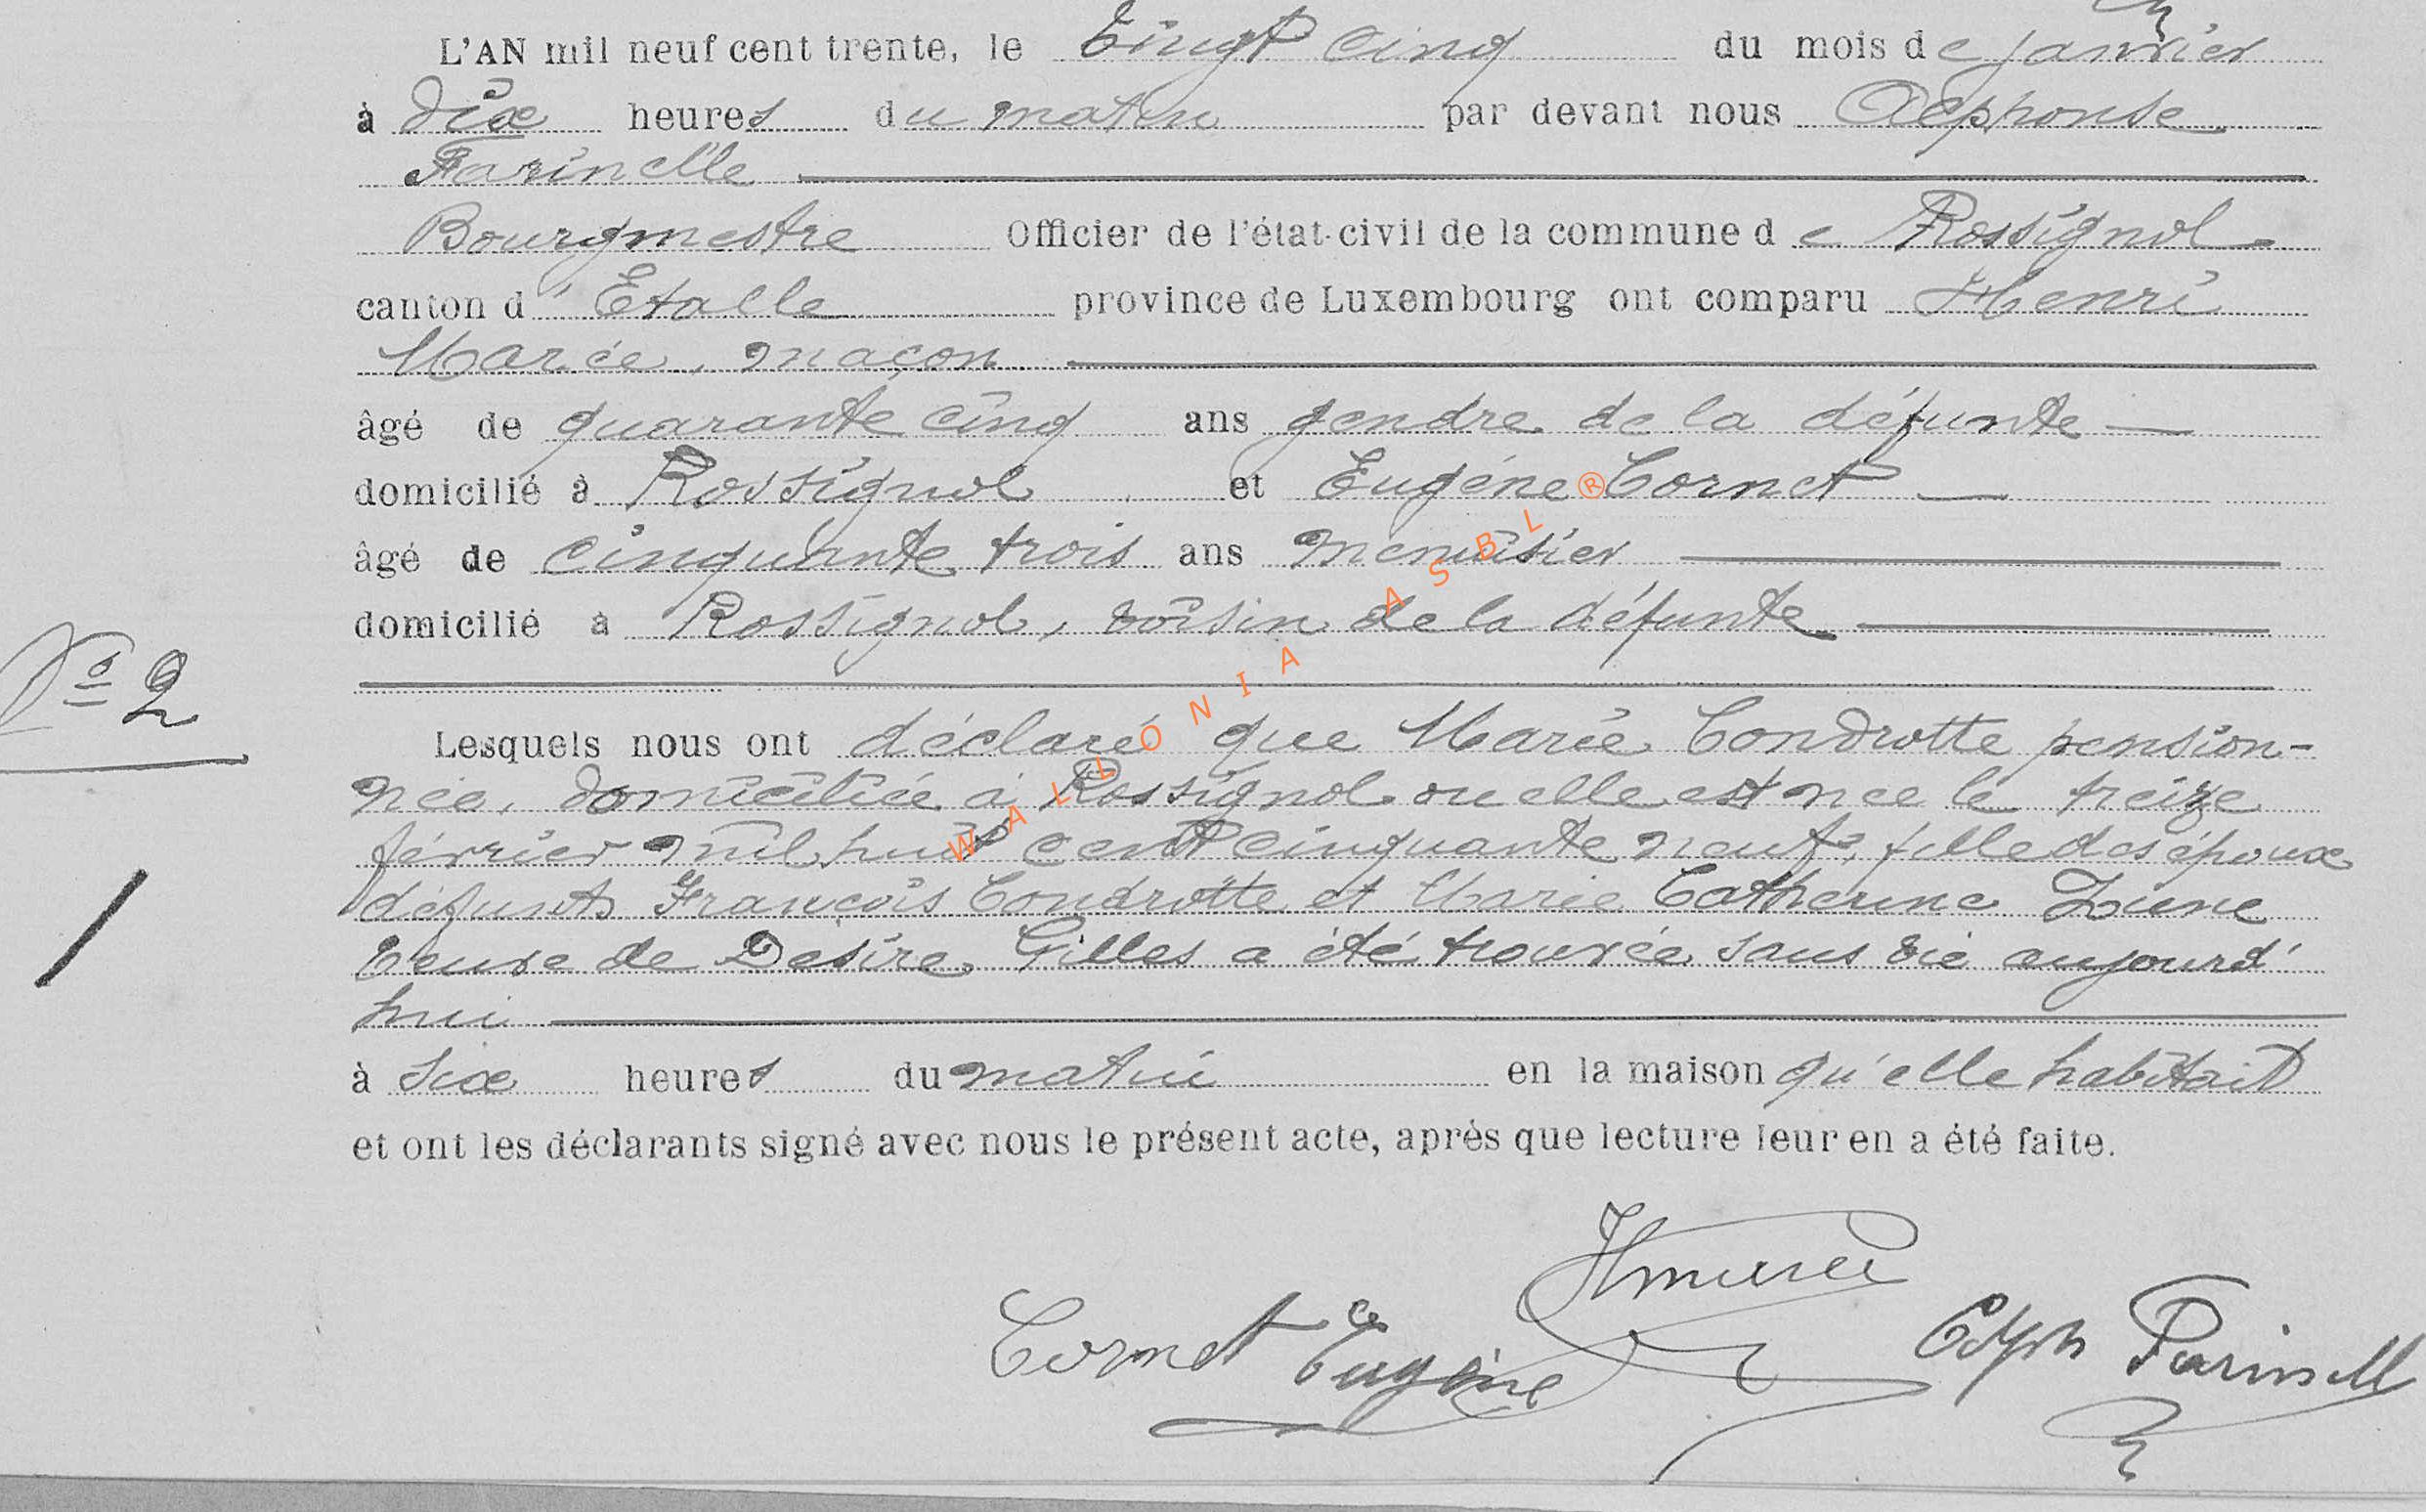 L'AN mil neuf cent trente, le vingt cinq du mois de janvier
à dix heures du matin par devant nous Alphonse
Farinelle
Bourgmestre Officier de l'état-civil de la commune de Rossignol
canton d'Etalle province de Luxembourg ont comparu Henri
Marée, maçon
âgé de quarante cinq ans gendre de la défunte
domicilié à Rossignol et Eugène Cornet
âgé de cinquante trois ans menuisier
domicilié à Rossignol, voisin de la défunte
No 2
Lesquels nous ont déclaré que Marie Condrotte pension-
née, domiciliée à Rossignol ou elle est née le treize
février mil huit cent cinquante neuf, fille des époux
défunts François Condrotte et Marie Catherine Zune
veuve de Désiré Gilles a été trouvée sans vie aujourd'
hui
à six heures du matin en la maison qu'elle habitait
et ont les déclarants signé avec nous le présent acte, après que lecture leur en a été faite.
HMarée
Cornet Eugène
Alph Farinelle
WALLONIA ASBL ®